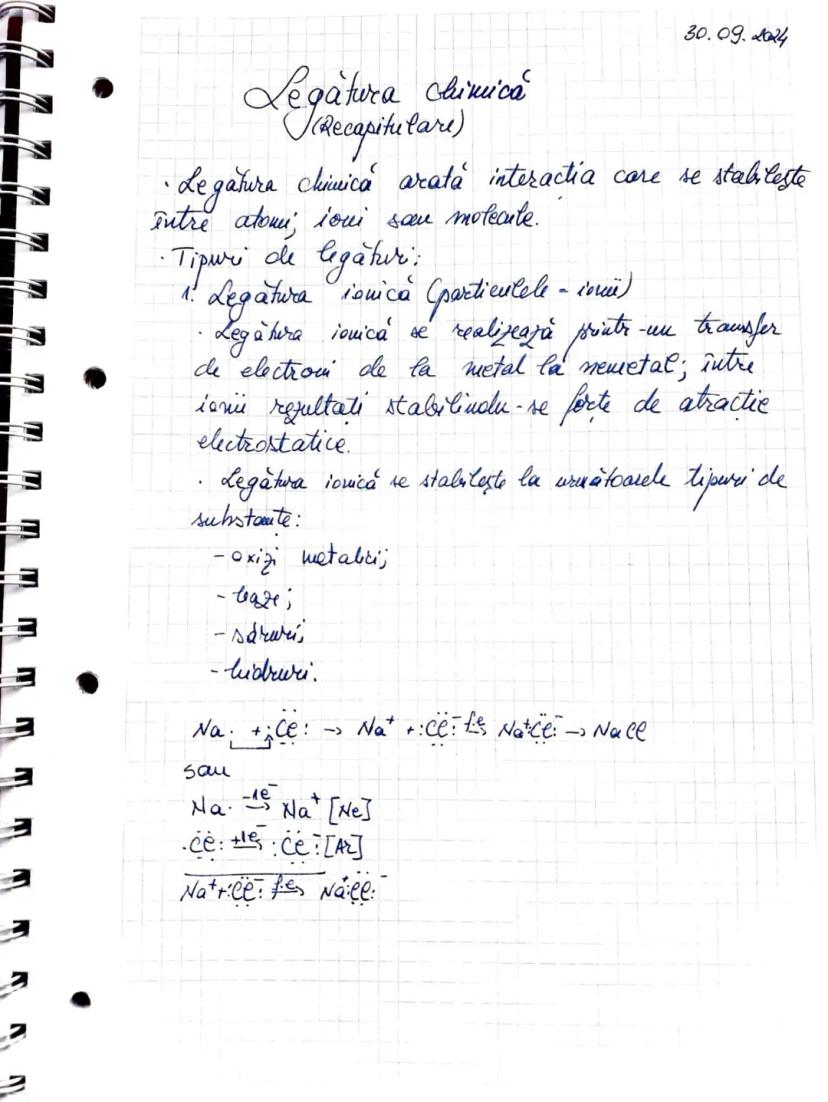 30.09.2024
Legătura chimică
(Recapitulare)
· Legătura chimică arată interactia care se stabilește
între atomi; ioni sau molecule.
· Tipuri de legături:
1. Legătura ionică (particulele - ionii)
· Legătura ionică se realizează printr-un transfer
de electroni de la metal la nemetal; între
ionii rezultati stabilindu-se forțe de atractie
electrostatice.
· Legătura ionică se stabilește la următoarele tipuri de
substante:
- oxizi metalici;
- baze;
- săruri;
- hidruri.
Na· + :C̤̈l: → Na⁺ + :C̤̈l:⁻ f.e→ Na⁺:C̤̈l:⁻ → NaCl
sau
Na· -1e⁻→ Na⁺ [Ne]
·C̤̈l: +1e⁻→ :C̤̈l:⁻ [Ar]
Na⁺ + :C̤̈l:⁻ f.e→ Na⁺:C̤̈l:⁻